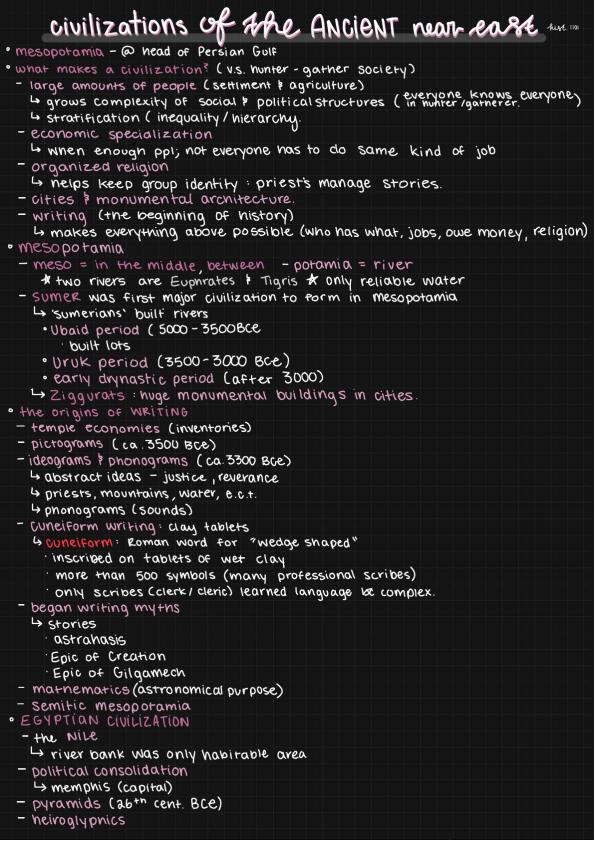 civilizations of the ANCIENT near east
• mesopotamia - @ head of Persian Gulf
• what makes a civilization? (v.s. hunter-gather society)
- large amounts of people (settlment & agriculture)
↳ grows complexity of social & political structures (everyone knows everyone in hunter/gatherer.)
↳ stratification (inequality/hierarchy.
- economic specialization
↳ when enough ppl; not everyone has to do same kind of job
- organized religion
↳ helps keep group identity : priest's manage stories.
- cities & monumental architecture.
- writing (the beginning of history)
↳ makes everything above possible (who has what, jobs, owe money, religion)
• mesopotamia
- meso = in the middle, between - potamia = river
★ two rivers are Euphrates & Tigris ★ only reliable water
- sumer was first major civilization to form in mesopotamia
↳ 'sumerians' built rivers
• Ubaid period (5000-3500BCE
· built lots
• Uruk period (3500-3000 BCE)
• early drynastic period (after 3000)
↳ Ziggurats : huge monumental buildings in cities.
• the origins of WRITING
- temple economies (inventories)
- pictograms (ca. 3500 BCE)
- ideograms & phonograms (ca. 3300 BCE)
↳ abstract ideas - justice, reverance
↳ priests, mountains, water, e.c.t.
↳ phonograms (sounds)
- cuneiform writing : clay tablets
↳ cuneiform : Roman word for "wedge shaped"
· inscribed on tablets of wet clay
· more than 500 symbols (many professional scribes)
· only scribes (clerk/cleric) learned language bc complex.
- began writing myths
↳ stories
· astrahasis
· Epic of Creation
· Epic of Gilgamech
- mathematics (astronomical purpose)
- Semitic mesopotamia
• EGYPTIAN CIVILIZATION
- the Nile
↳ river bank was only habitable area
- political consolidation
↳ memphis (capital)
- pyramids (26th cent. BCE)
- heiroglyphics